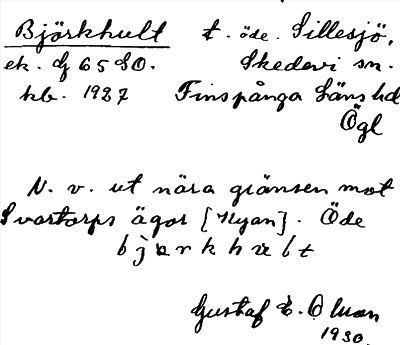 Björkhult t. öde. Sillesjö,
ek. G 65 SO. Skedevi sn.
kb. 1927 Finspånga Läns hd
Ögl
N. v. ut nära gränsen mot
Svartorps ägor [Nyan]. Öde
Gustaf E. Olsson
1930.